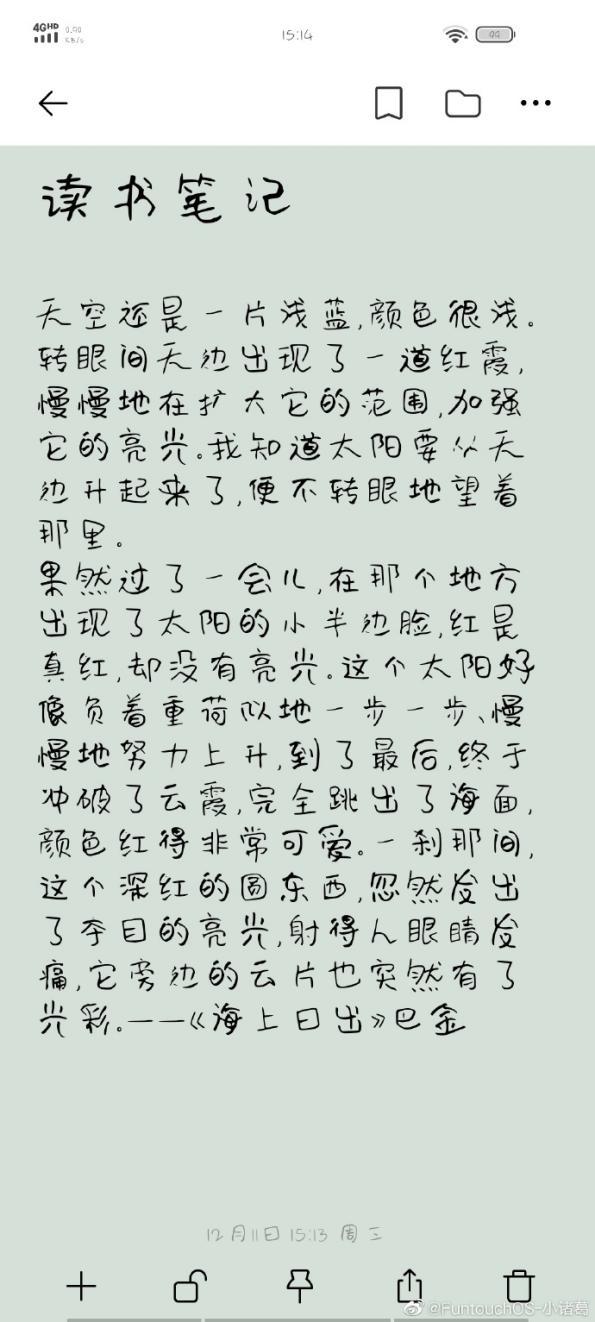 4GHD 0.90 KB/s 15:14 99
读书笔记
天空还是一片浅蓝,颜色很浅。
转眼间天边出现了一道红霞,
慢慢地在扩大它的范围,加强
它的亮光。我知道太阳要从天
边升起来了,便不转眼地望着
那里。
果然过了一会儿,在那个地方
出现了太阳的小半边脸,红是
真红,却没有亮光。这个太阳好
像负着重荷似地一步一步、慢
慢地努力上升,到了最后,终于
冲破了云霞,完全跳出了海面,
颜色红得非常可爱。一刹那间,
这个深红的圆东西,忽然发出
了夺目的亮光,射得人眼睛发
痛,它旁边的云片也突然有了
光彩。——《海上日出》巴金
12月11日 15:13 周三
@FuntouchOS-小诸葛